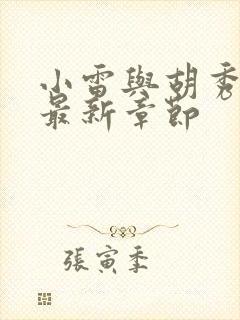 小雷與胡秀
最新章節
張寅季